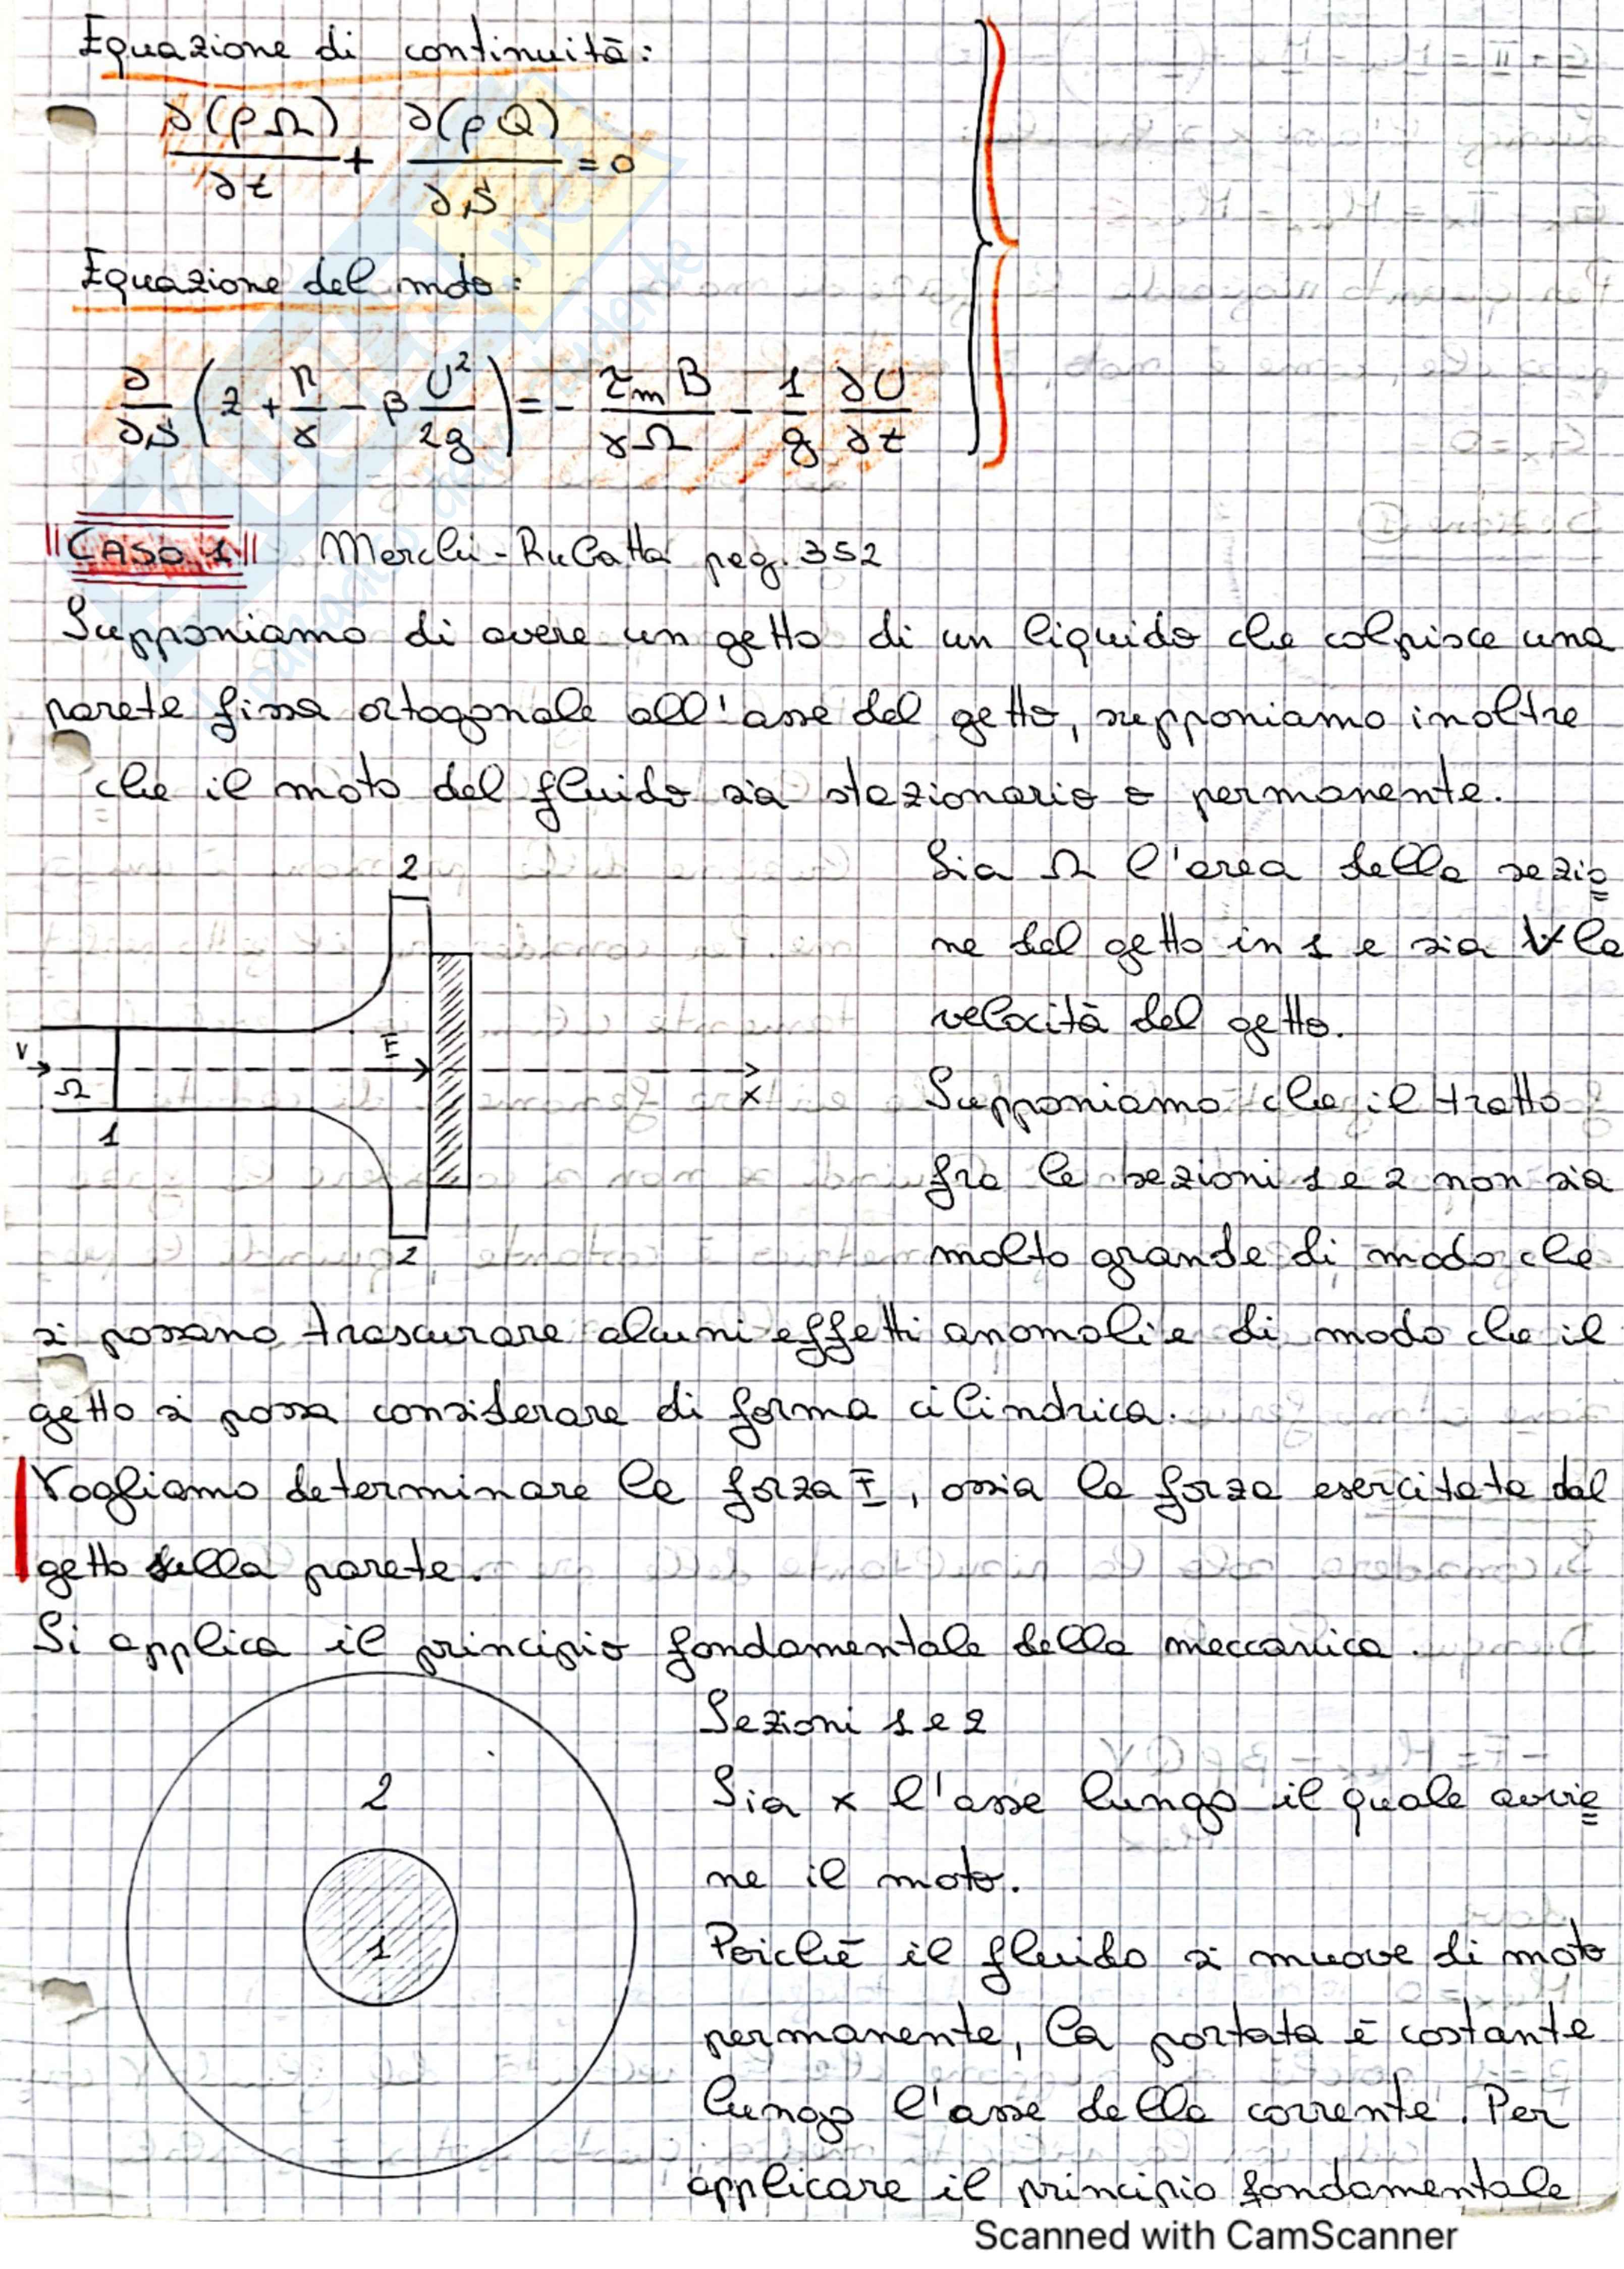 Equazione di continuità:
∂(ρΩ)/∂t + ∂(ρQ)/∂s = 0
Equazione del moto:
∂/∂s (z + p/γ - β U²/2g) = - τm B/γΩ - 1/g ∂U/∂t
"CASO 1" Marchi-Rubatta pag. 352
Supponiamo di avere un getto di un liquido che colpisce una
parete fissa ortogonale all'asse del getto, supponiamo inoltre
che il moto del fluido sia stazionario o permanente.
Sia Ω l'area della sezio
ne del getto in 1 e sia V la
velocità del getto.
Supponiamo che il tratto
fra le sezioni 1 e 2 non sia
molto grande di modo che
si possano trascurare alcuni effetti anomali e di modo che il
getto si possa considerare di forma cilindrica.
Vogliamo determinare la forza F, ossia la forza esercitata dal
getto sulla parete.
Si applica il principio fondamentale della meccanica.
2
V
Ω
F
x
1
2
Sezioni 1 e 2
Sia x l'asse lungo il quale avvie
ne il moto.
Poichè il fluido si muove di moto
permanente, la portata è costante
lungo l'asse della corrente. Per
applicare il principio fondamentale
2
1
Scanned with CamScanner